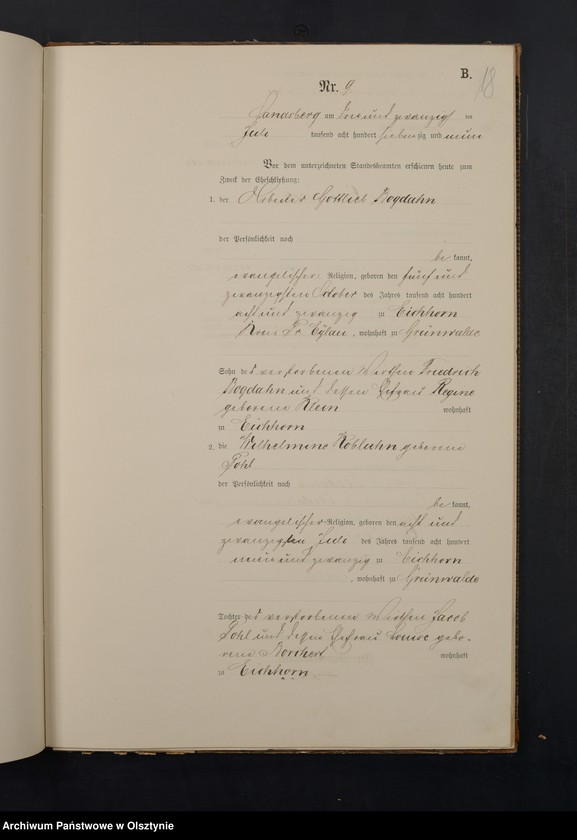 B.
18
Nr. 9
Landsberg am drei und zwanzigsten
Juli tausend acht hundert siebenzig und neun
Vor dem unterzeichneten Standesbeamten erschienen heute zum
Zweck der Eheschließung:
1. der Arbeiter Gottlieb Bogdahn
der Persönlichkeit nach
be kannt,
evangelischer Religion, geboren den fünf und
zwanzigsten October des Jahres tausend acht hundert
acht und zwanzig zu Eichhorn
Kreis Pr. Eylau, wohnhaft zu Grünwalde
Sohn des verstorbenen Wirthen Friedrich
Bogdahn und dessen Ehefrau Regine
geborene Klein wohnhaft
zu Eichhorn
2. die Wilhelmine geborene
Pohl
der Persönlichkeit nach
be kannt,
evangelischer Religion, geboren den acht und
zwanzigsten Juli des Jahres tausend acht hundert
neun und zwanzig zu Eichhorn
, wohnhaft zu Grünwalde
Tochter des verstorbenen Wirthen Jacob
Pohl und dessen Ehefrau Louise gebo-
rene wohnhaft
zu Eichhorn
Archiwum Państwowe w Olsztynie